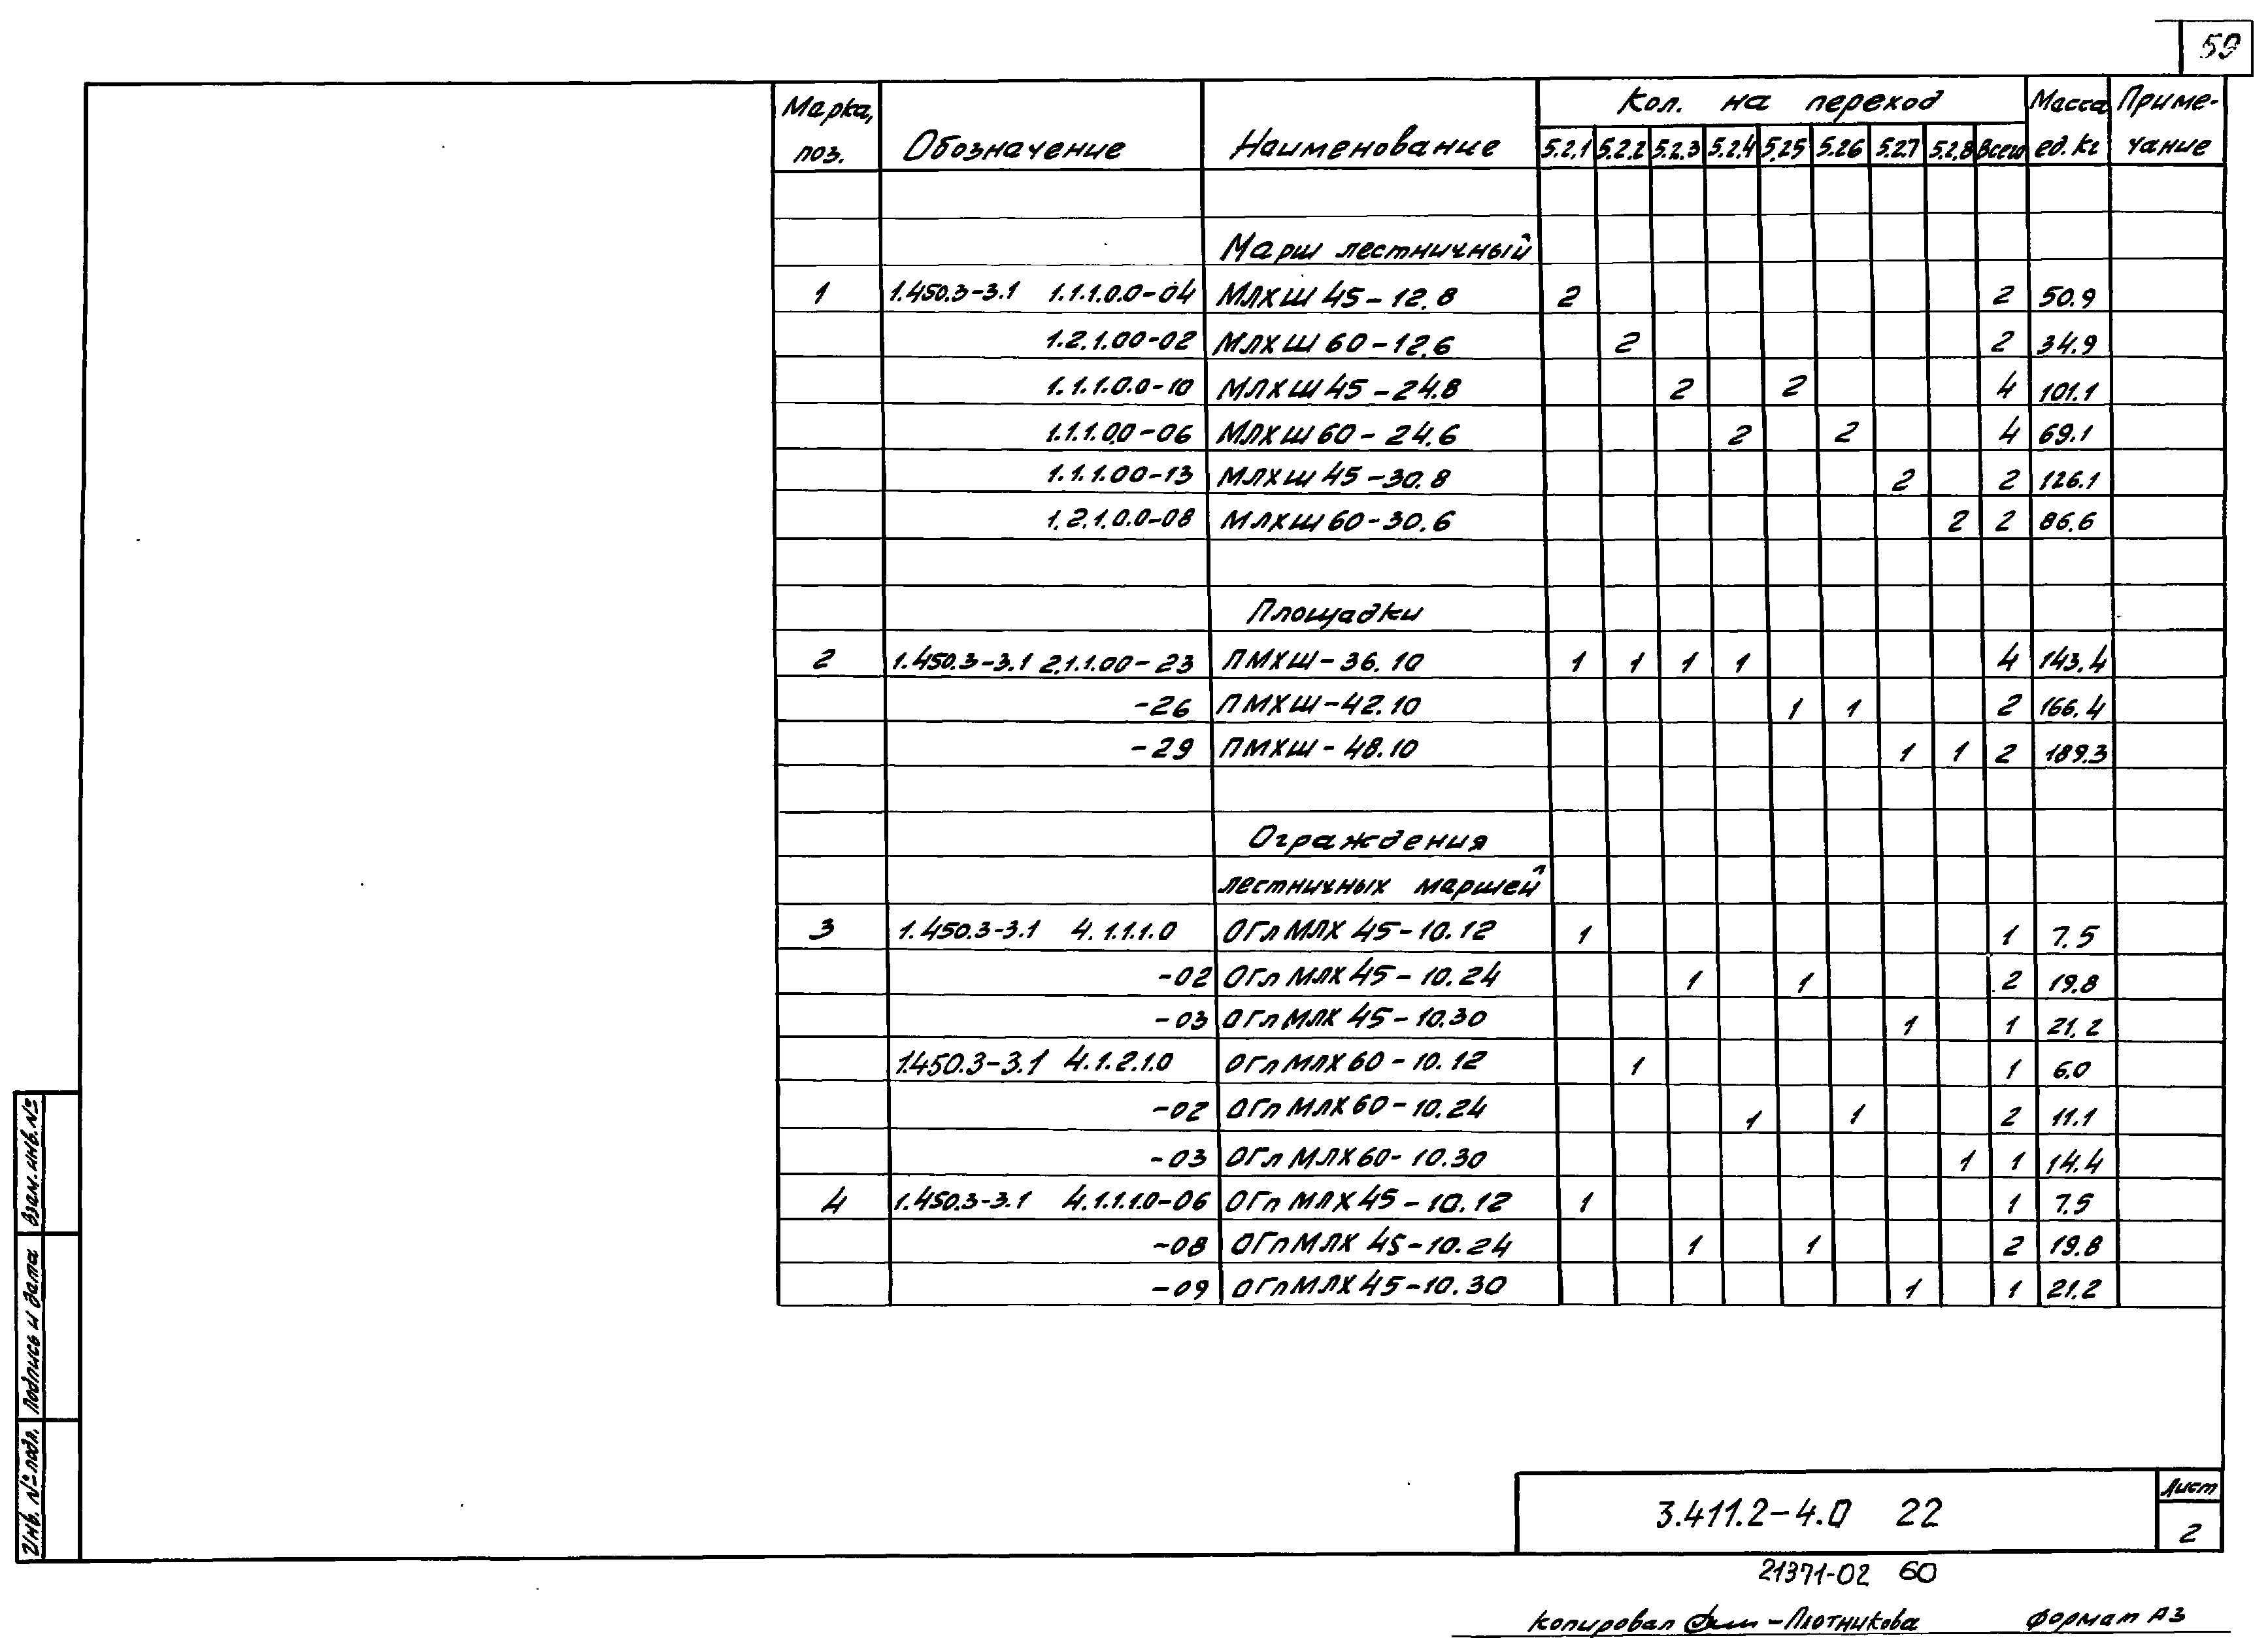 59
Марка, поз. Обозначение Наименование Кол. на переход Масса ед. кг Приме-чание
5.2.1 5.2.2 5.2.3 5.2.4 5.25 5.26 5.27 5.2.8 Всего
Марш лестничный
1 1.450.3-3.1 1.1.1.0.0-04 МЛХШ 45-12.8 2 2 50.9
1.2.1.00-02 МЛХШ 60-12.6 2 2 34.9
1.1.1.0.0-10 МЛХШ 45-24.8 2 2 4 101.1
1.1.1.0.0-06 МЛХШ 60-24.6 2 2 4 69.1
1.1.1.00-13 МЛХШ 45-30.8 2 2 126.1
1.2.1.0.0-08 МЛХШ 60-30.6 2 2 86.6
Площадки
2 1.450.3-3.1 2.1.1.00-23 ПМХШ-36.10 1 1 1 1 4 143.4
-26 ПМХШ-42.10 1 1 2 166.4
-29 ПМХШ-48.10 1 1 2 189.3
Ограждения
лестничных маршей
3 1.450.3-3.1 4.1.1.1.0 ОГлМЛХ 45-10.12 1 1 7.5
-02 ОГлМЛХ 45-10.24 1 1 2 19.8
-03 ОГлМЛХ 45-10.30 1 1 21.2
1.450.3-3.1 4.1.2.1.0 ОГлМЛХ 60-10.12 1 1 6.0
-02 ОГлМЛХ 60-10.24 1 1 2 11.1
-03 ОГлМЛХ 60-10.30 1 1 14.4
4 1.450.3-3.1 4.1.1.1.0-06 ОГпМЛХ 45-10.12 1 1 7.5
-08 ОГпМЛХ 45-10.24 1 1 2 19.8
-09 ОГпМЛХ 45-10.30 1 1 21.2
Взам. инв. №
Подпись и дата
Инв. № подл.
3.411.2-4.0 22
Лист
2
21371-02 60
Копировал - Плотникова формат А3